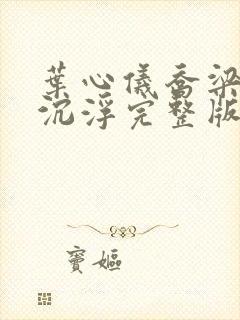 葉心儀喬梁
沉浮完整版
寶嫗